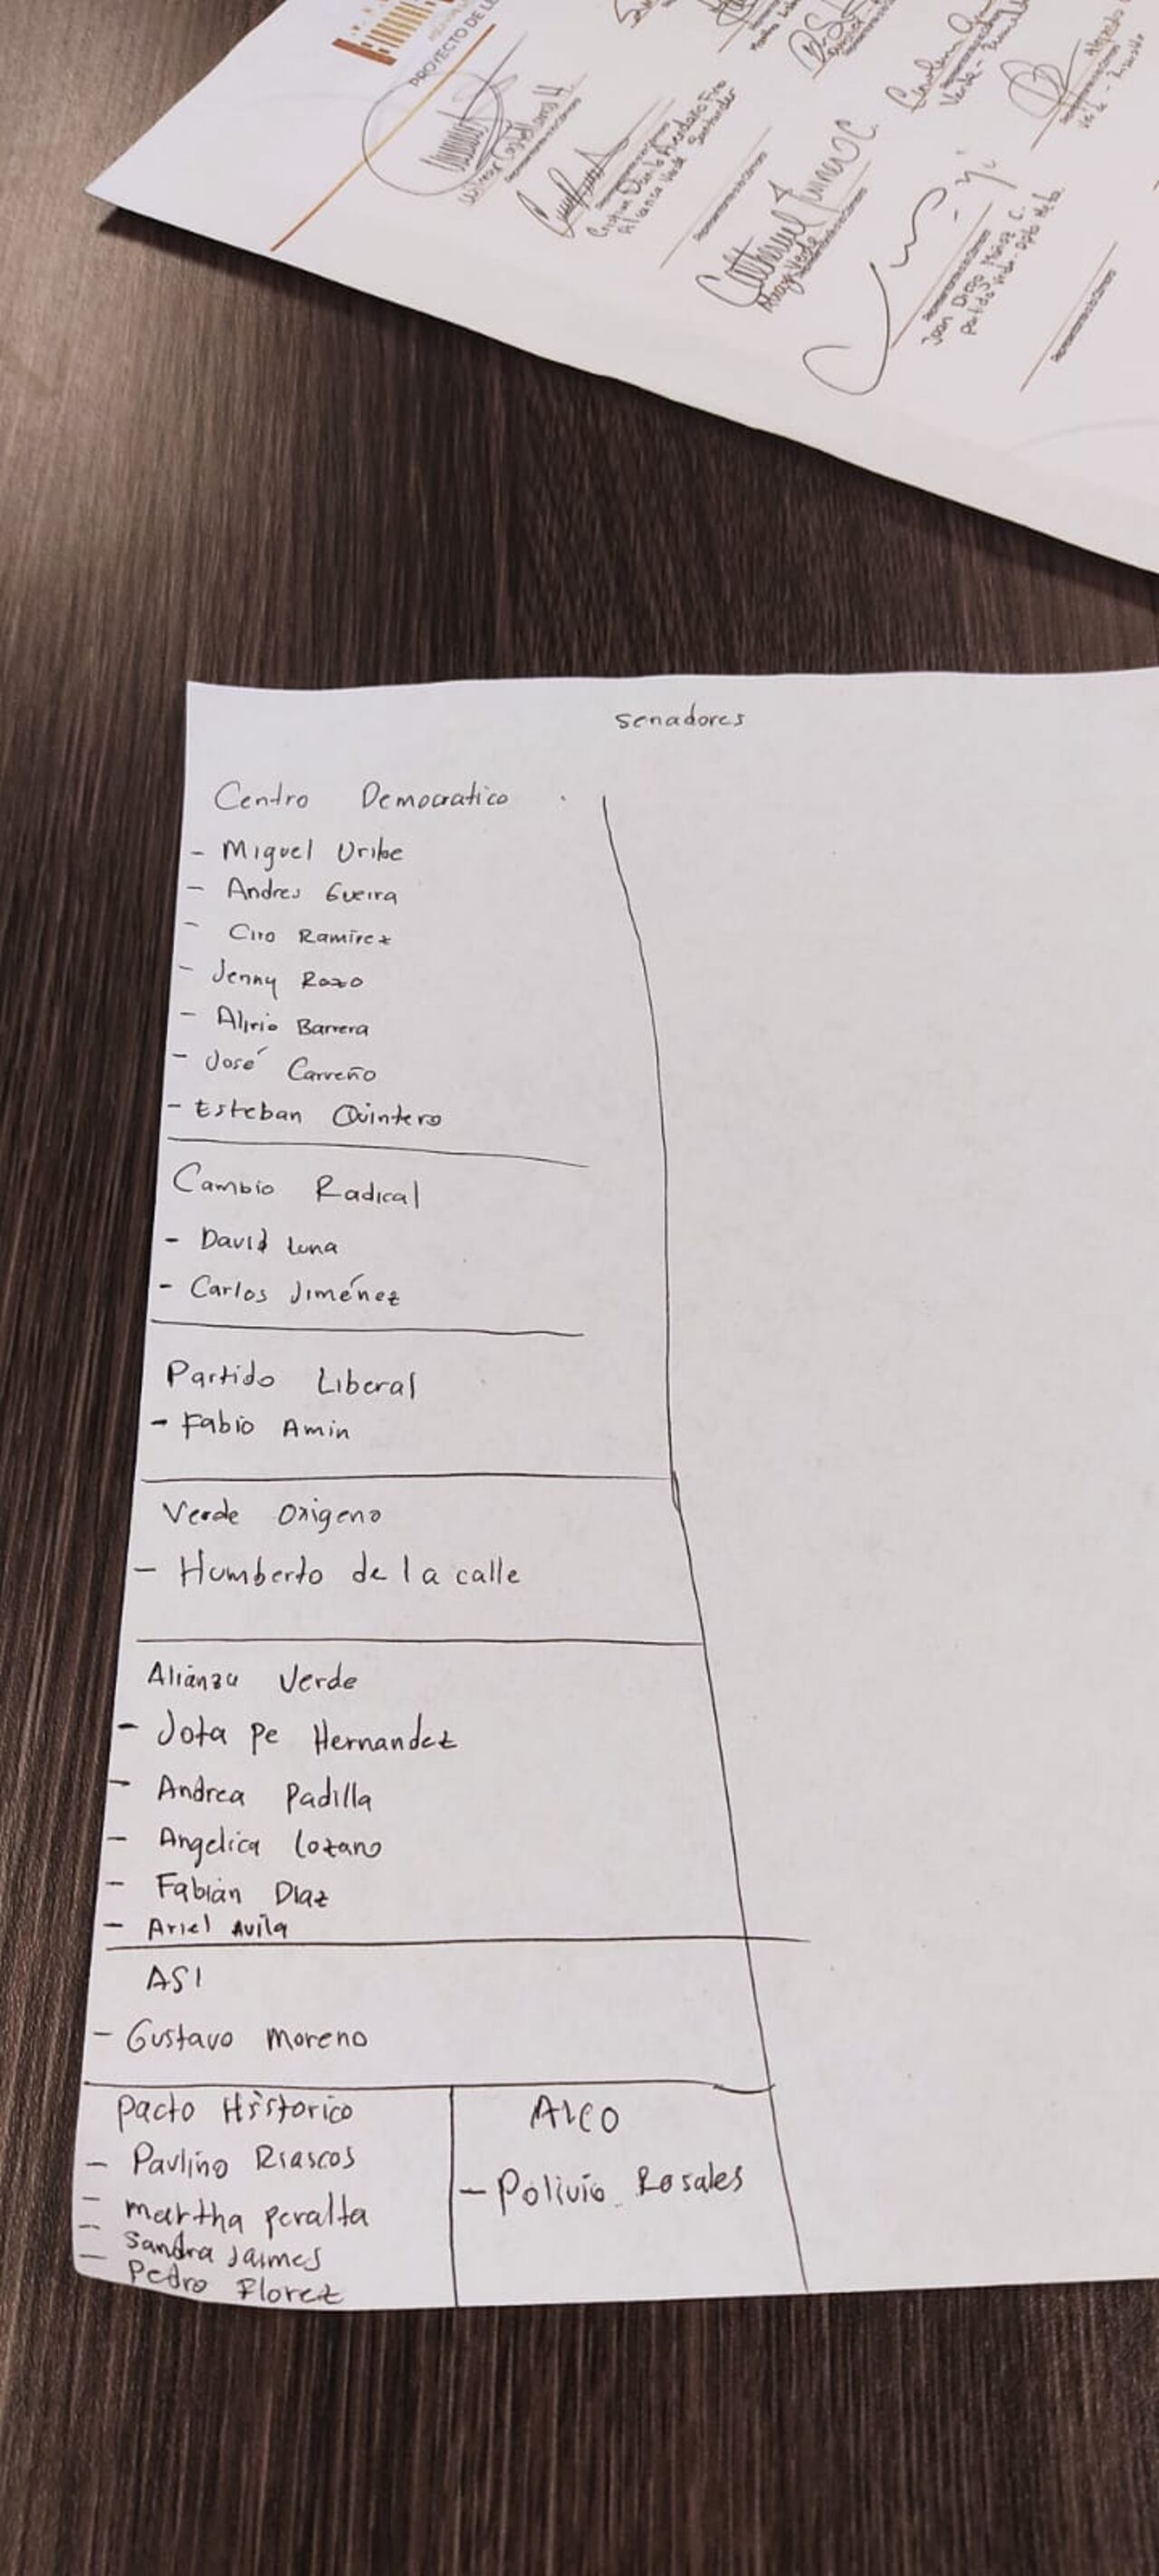 PROYECTO DE LE
Cristian Danilo Avendaño Fino
Alianza Verde Santander
Juan Diego Muñoz C.
Partido Verde - Dpto Meta.
senadores
Centro Democratico
- Miguel Uribe
- Andres Guerra
- Ciro Ramirez
- Jenny Rozo
- Alirio Barrera
- José Carreño
- Esteban Quintero
Cambio Radical
- David Luna
- Carlos Jiménez
Partido Liberal
- Fabio Amin
Verde Oxigeno
- Humberto de la calle
Alianza Verde
- Jota Pe Hernandez
- Andrea Padilla
- Angelica Lozano
- Fabián Diaz
- Ariel Avila
ASI
- Gustavo Moreno
Pacto Historico
- Paulino Riascos
- martha peralta
- Sandra Jaimes
- Pedro Florez
AICO
- Polivio Rosales